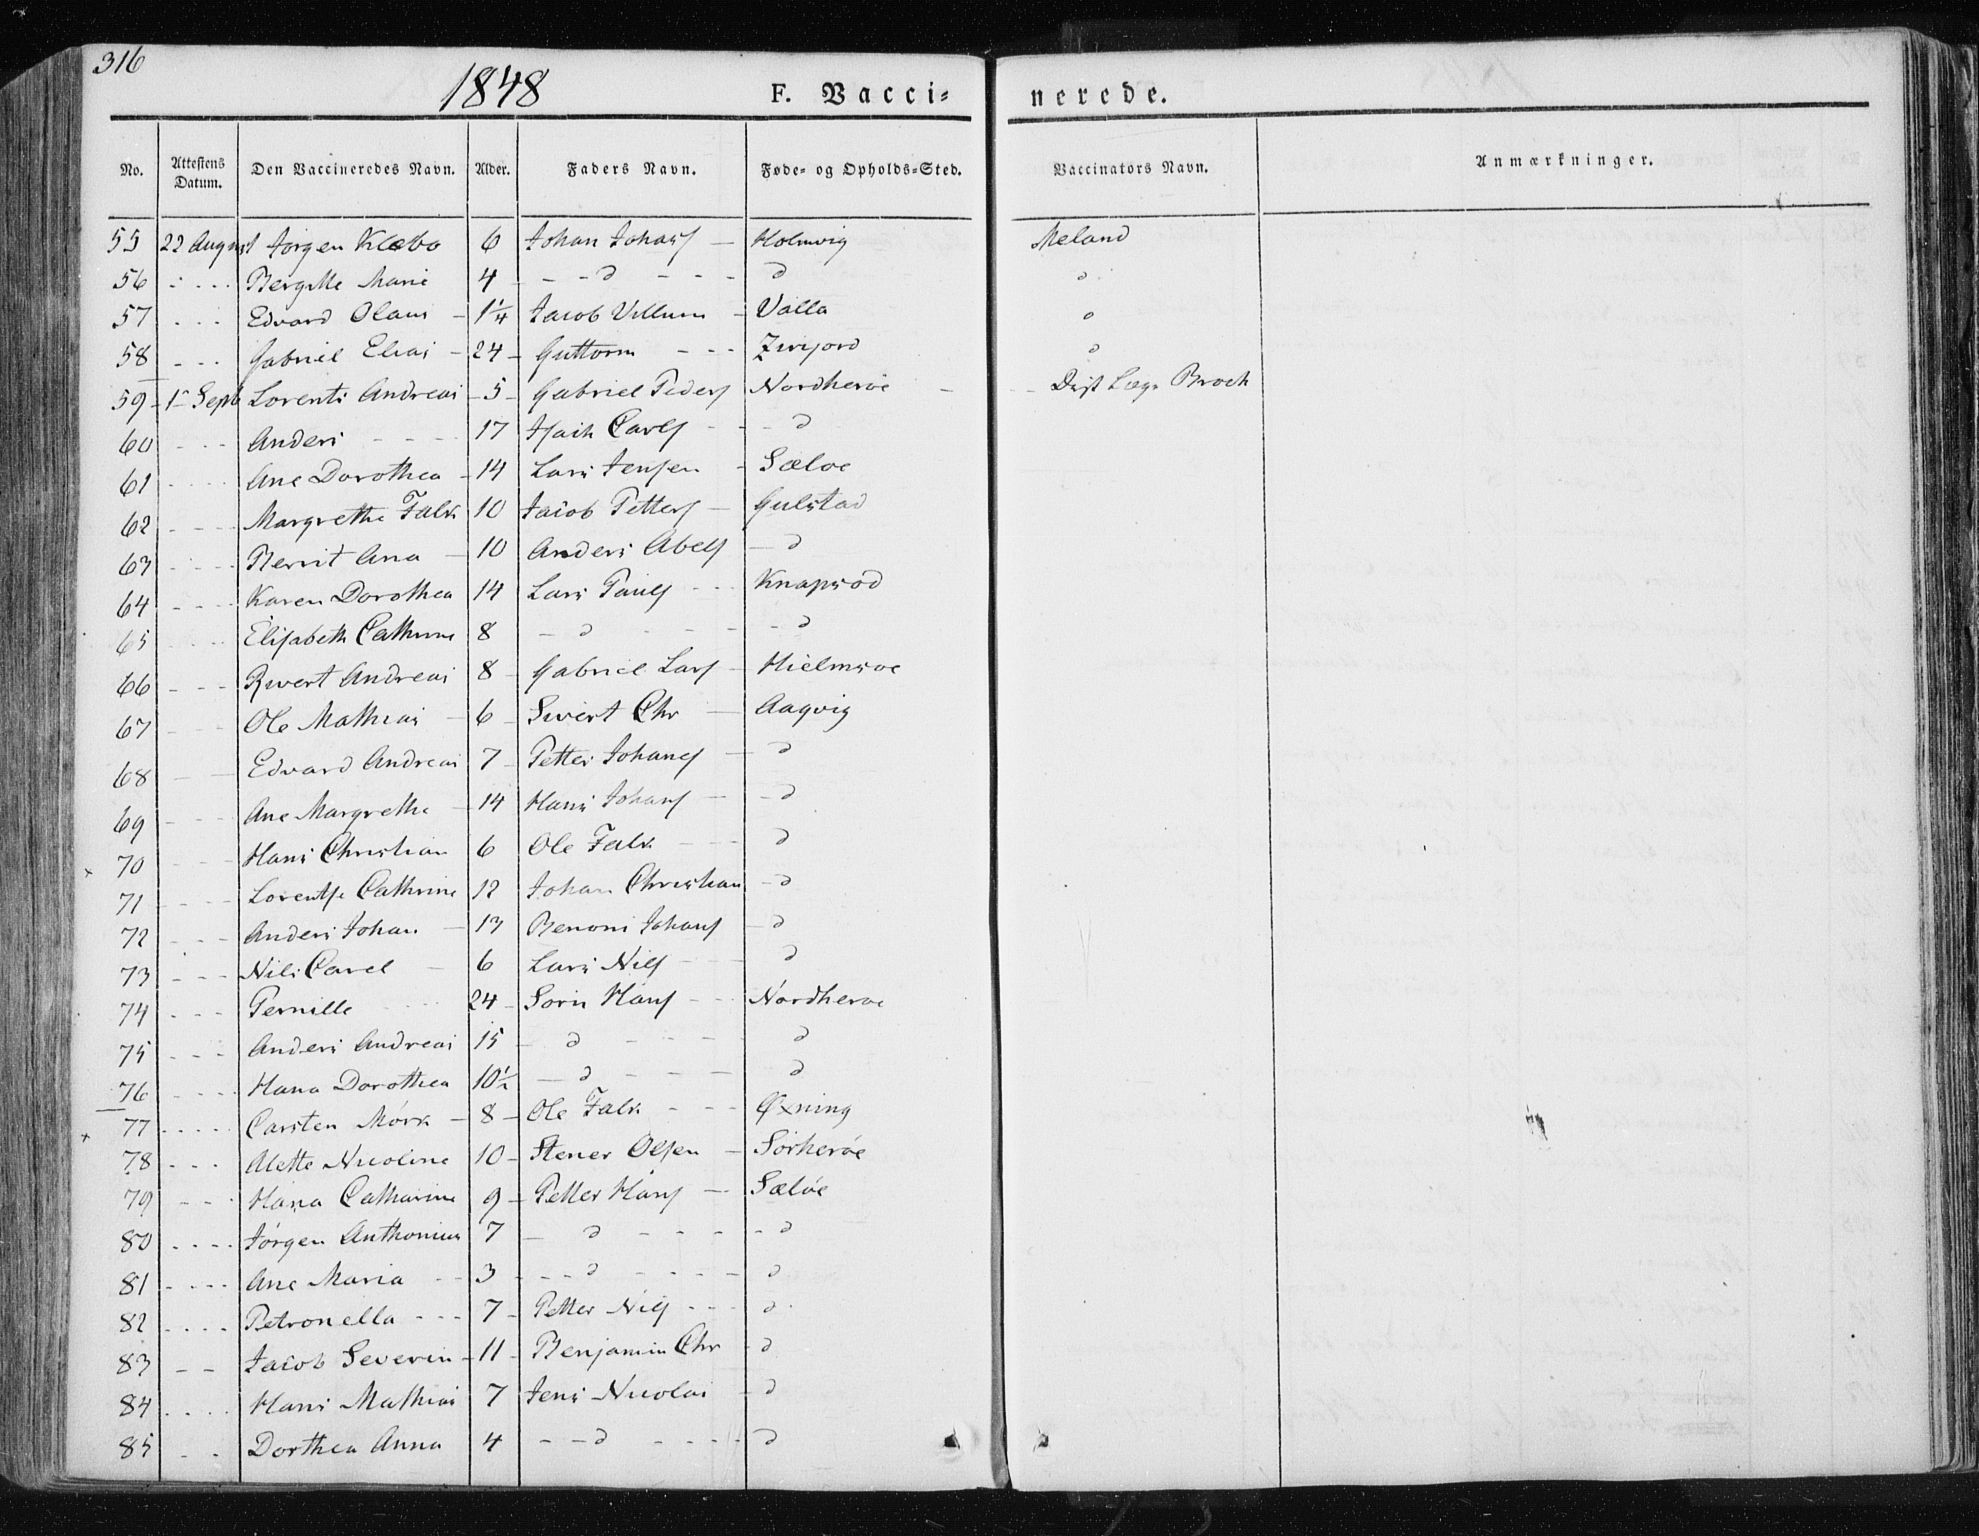 316
1848 F. Vacci- nerede.
No. Attestens Datum. Den Vaccineredes Navn. Alder. Faders Navn. Føde- og Opholds-Sted. Vaccinators Navn. Anmærkninger.
55 22 August Jørgen Klæbo 6 Johan Johans Holmvig Meland
56 Bergitte Marie 4 d d d
57 Edvard Olaus 1 1/4 Jacob Villum Valla d
58 Gabriel Elias 24 Guttorm d
59 1 Sept Lorents Andreas 5 Gabriel Peders Nordherøe Dist Læge Broch
60 Anders 17 Isach Carls d
61 Ane Dorothea 14 Lars Jensen Sæløe
62 Margrethe Falk 10 Jacob Petters Gulstad
63 Berrit Ana 10 Anders Abels d
64 Karen Dorothea 14 Lars Pauls
65 Elisabeth Cathrine 8 d d
66 Andreas 8 Gabriel Lars Hielmsoe
67 Ole Mathias 6 Sivert Chr Aagvig
68 Edvard Andreas 7 Petter Johans d
69 Ane Margrethe 14 Hans Johans d
70 Hans Christian 6 Ole Falk d
71 Lorentse Cathrine 12 Johan Christian d
72 Anders Johan 13 Benoni Johans d
73 Nils Carel 6 Lars Nils d
74 Pernille 24 Sørn Hans Nordherøe
75 Anders Andreas 15 d d
76 Hana Dorothea 10 1/2 d d
77 Carsten Mörk 8 Ole Falk Øxning
78 Alette Nicoline 10 Stener Olsen Sørherøe
79 Hana Catharine 9 Petter Hans Sæløe
80 Jørgen Anthonius 7 d d
81 Ane Maria 3 d d
82 Petronella 7 Petter Nils d
83 Jacob Severin 11 Benjamin Chr d
84 Hans Mathias 7 Jens Nicolai d
85 Dorthea Anna 4 d d